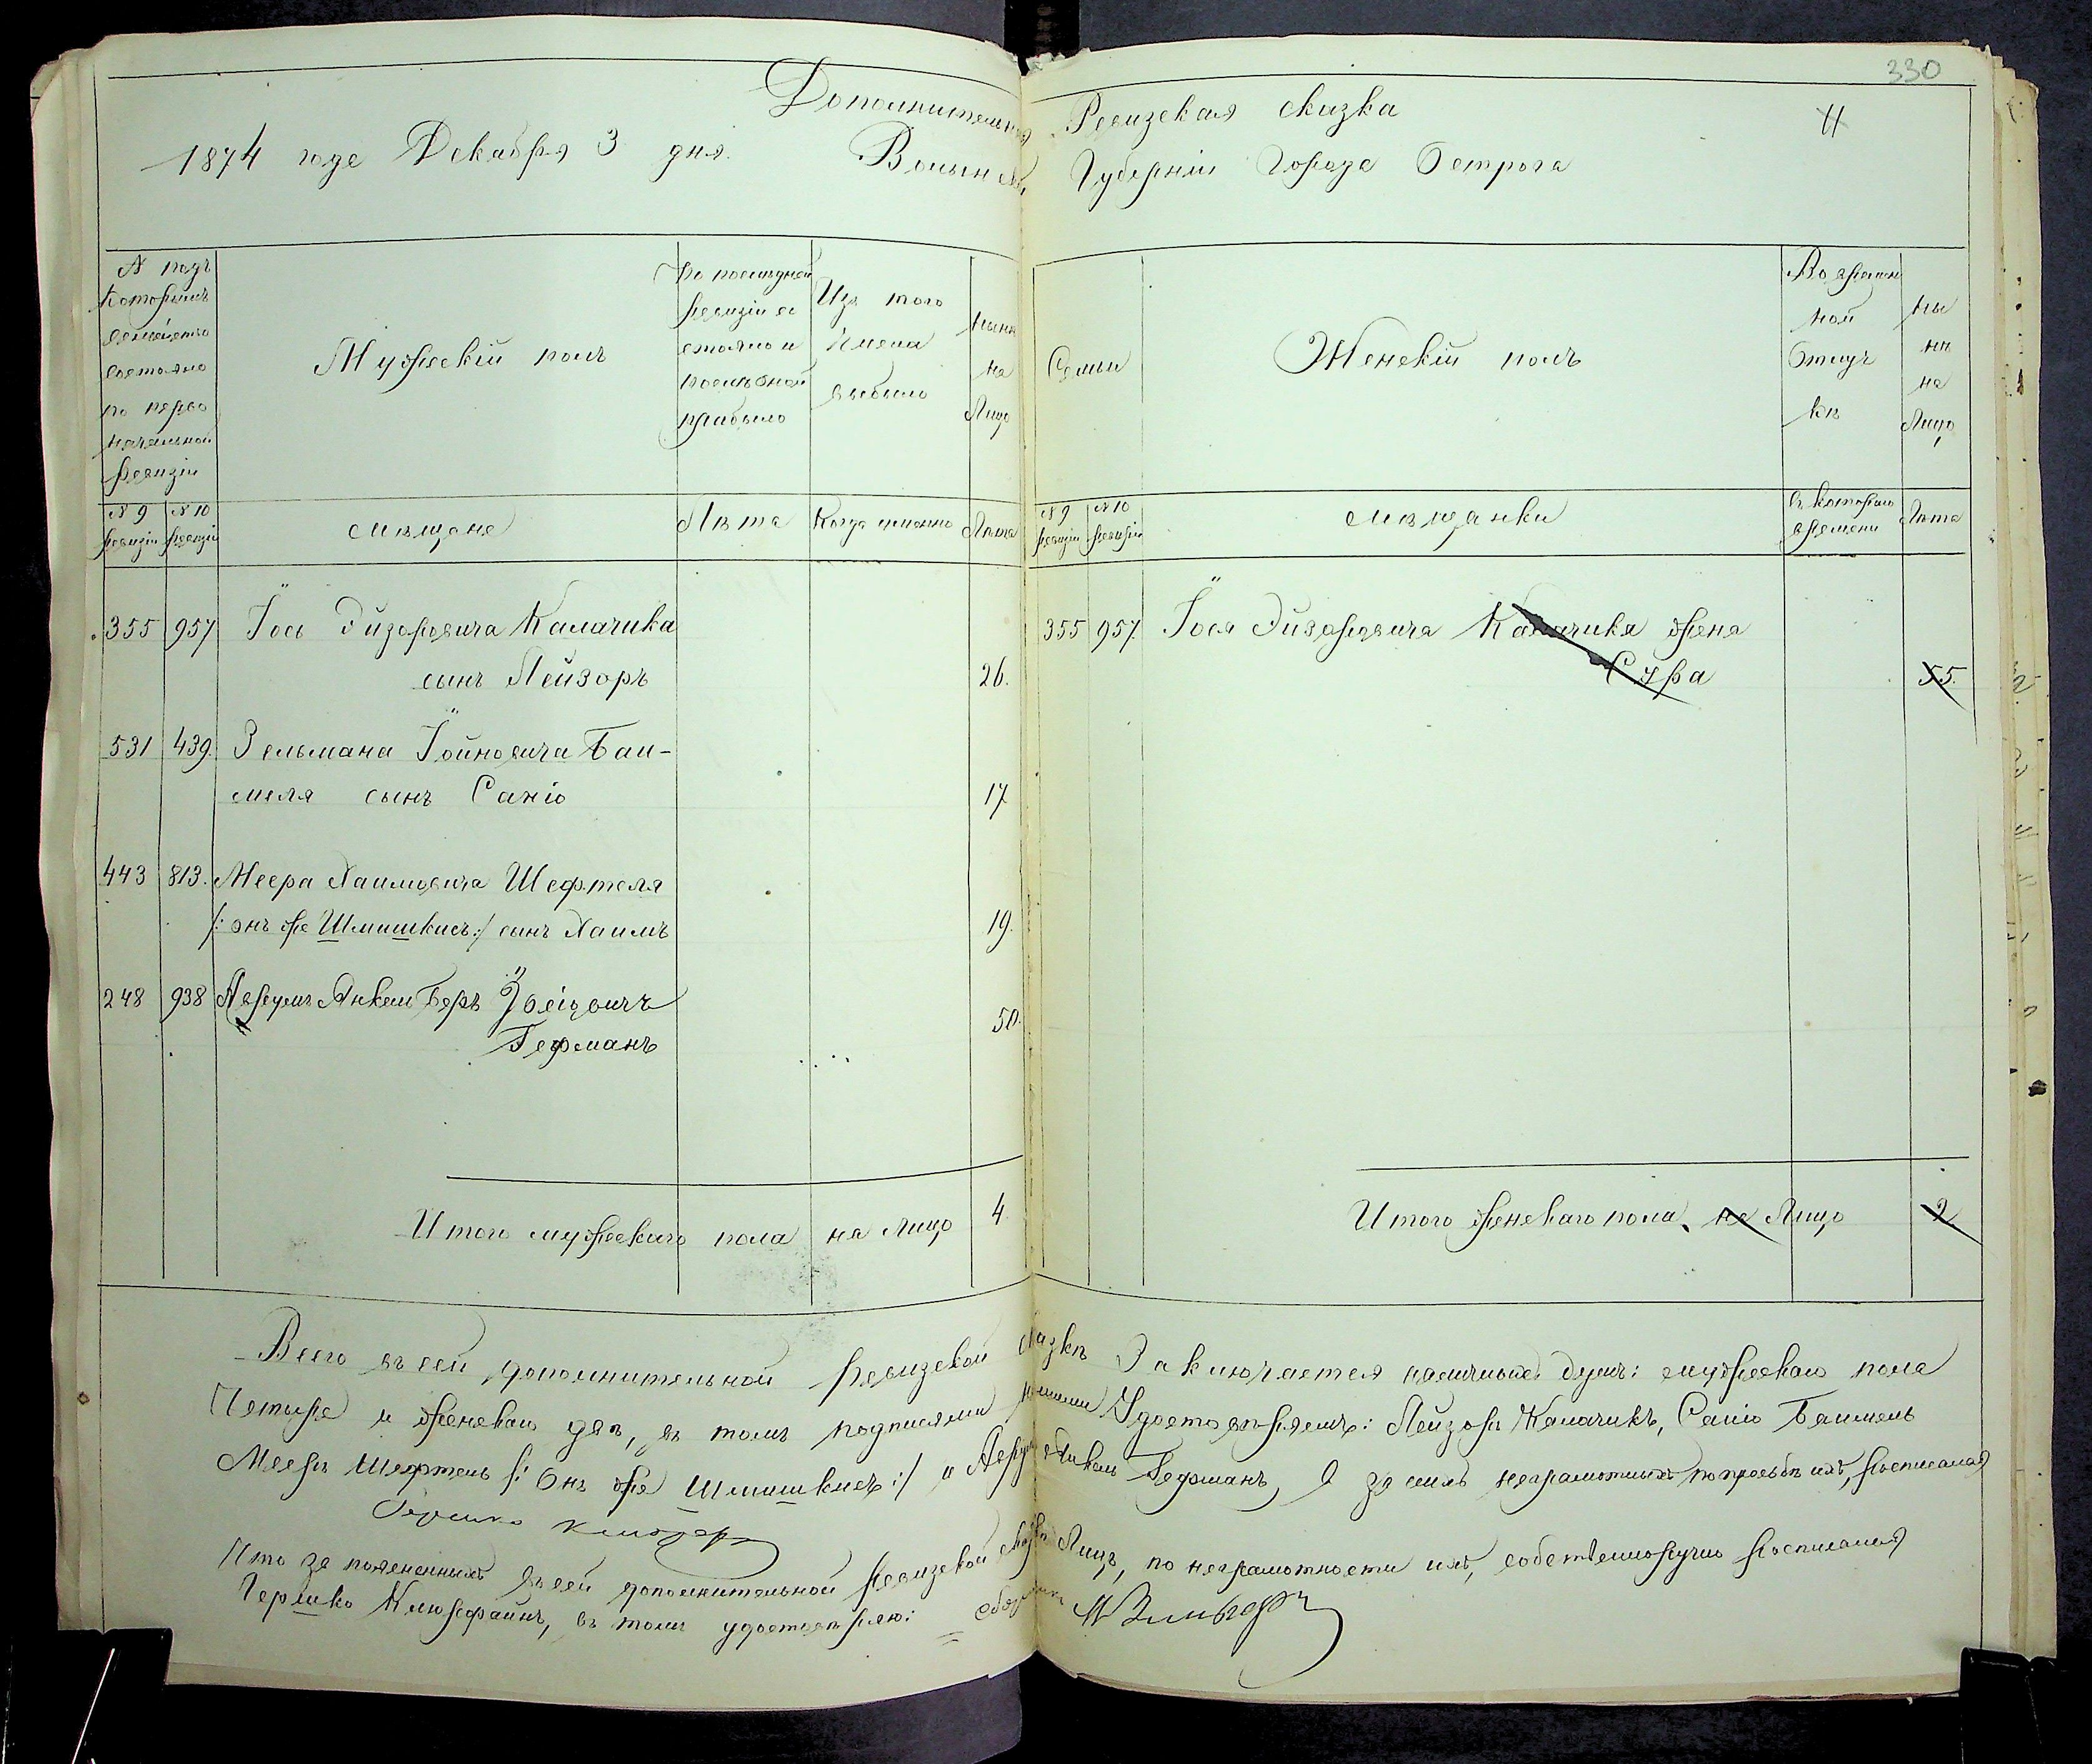 330
11
Дополнительная Ревизская сказка
1874 года Декабря 3 дня. Волынской Губерніи Города Острога
№ подъ которымъ семейство состояно по перво начальной ревизіи
Мужескій полъ
По последней ревизіи состояло и после оной прибыло
Изъ того числа выбыло
Нынѣ на Лицо
Семьи
Женскій полъ
Во времен ной Отлуч кѣ
Ны нѣ на Лицо
№ 9 ревизіи
№ 10 ревизіи
мѣщане
Лѣта
Когда именно
Лѣта
№ 9 ревизіи
№ 10 ревизіи
мѣщанки
Съ котораго времени
Лѣта
355 957 Іось Эйзоровича Каларика
сынъ Лейзоръ 26.
531 439. Зельмана Іойновича Баи-
меля сынъ Саніо 17
443 813. Меера Хаимовича Шефтеля
/: онъ же Шмишкисъ :/ сынъ Хаимъ 19.
248 938 Аврумъ Янкель Беръ
Гефманъ 50.
355 957. Іося Эйзоровича Каларика жена
Сура 55.
Итого мужескаго пола на Лицо 4.
Итого женскаго пола, на Лицо 2
Всего въ сей дополнительной ревизской сказкѣ Заключается наличныхъ душъ: мужескаго пола
Четыре и женскаго двѣ, въ томъ подписями нашими Удостовѣряемъ: Лейзоръ Каларикъ, Саніо Баимель
Мееръ Шефтель /: Онъ же Шмишкисъ :/ и Аврумъ Янкель Гефманъ, А за нихъ неграмотныхъ по просьбѣ ихъ, росписался
Что за поясненныхъ въ сей дополнительной ревизской сказкѣ Лицъ, по неграмотности ихъ, собственноручно росписался
Гершко въ томъ удостовѣряю: